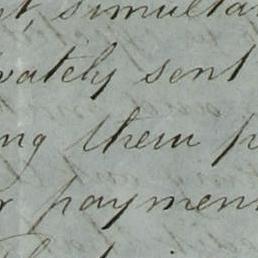 t, simulta
vately sent
ng them p
r payment